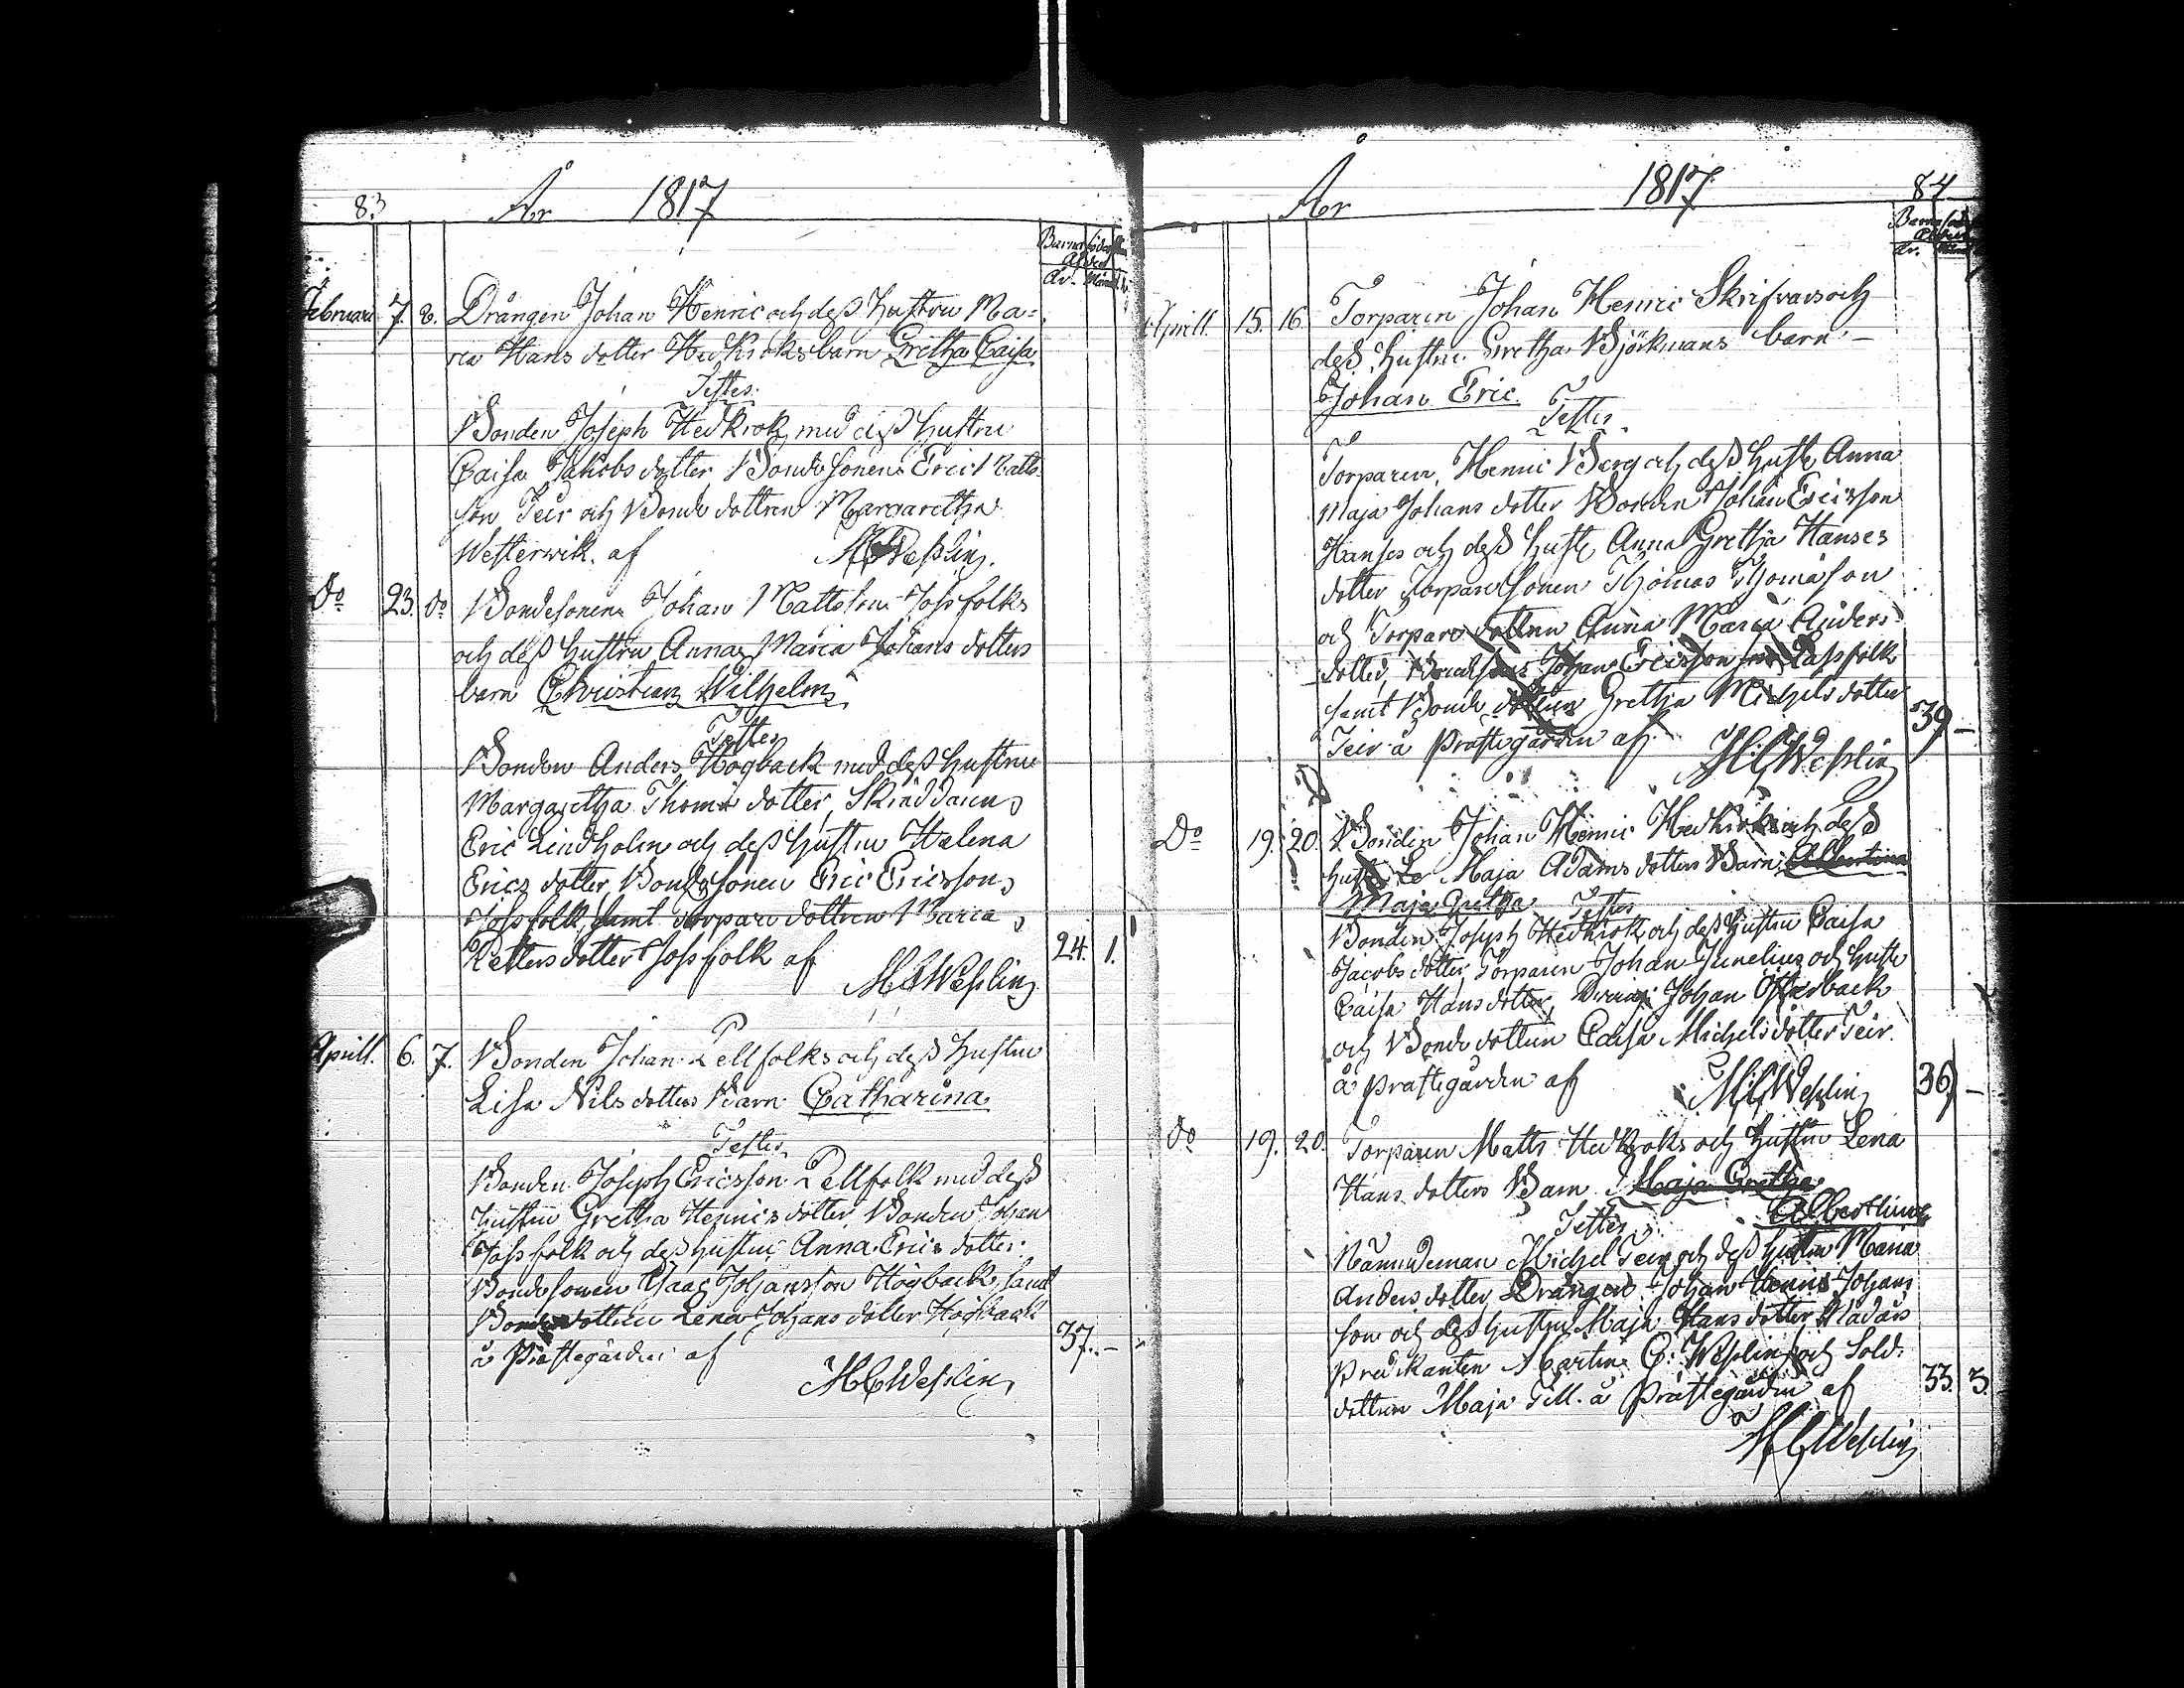 83
År 1817
Barnaföderskans
Ålder
År. Månad
Februari 7. 8. Drängen Johan Henric och deß hustru Ma-
ria Hans dotter Hedkroks barn Gretha Caisa
Testes
Bonden Joseph Hedkrok med deß hustru
Caisa Jakobs dotter, Bondesonen Eric Matts
son Teir och Bonde dottren Margaretha
Westerwik. af MCWeßlin
Do 23. do Bondesonen Johan Mattsson Jossfolks
och deß hustru Anna Maria Johans dotters
barn Christian Wilhelm
Testes
Bonden Anders Högback med deß hustru
Margaretha Thoma dotter, Skinddaren
Eric Lindholm och deß hustru Helena
Erics dotter, Bondesonen Eric Ericsson
Jossfolk, samt torpare dottren Maria
Petters dotter Jossfolk af 24. 1.
MCWeßlin
Aprill. 6. 7. Bonden Johan Pellfolks och deß hustru
Lisa Nils dotters Barn Catharina
Testes
Bonden Joseph Ericsson Pellfolk med deß
hustru Gretha Henrics dotter, Bonden Johan
Jossfolk och deß hustru Anna Erics dotter.
Bondesonen Isaac Johansson Högback, samt
Bondedottren Lena Johans dotter Högback
å Prästegården af 37. –
MCWeßlin
År 1817 84
År.
Aprill. 15. 16. Torparen Johan Henric Skrifvars och
deß hustru Gretha Björkmans barn –
Johan Eric.
Testes
Torparen, Henric Berg och deß hust Anna
Maja Johans dotter Bonden Johan Ericsson
Hanses och deß hust Anna Gretha Hanses
dotter Torparesonen Thomas Thomasson
och Torpare dottren Anna Maria Anders
dotter, Johan Ericsson Passfolk
samt Bonde dottren Gretha Michels dotter
Teir å Prästegården af 39 –
MCWeßlin
Do 19. 20. Bonden Johan Henric Hedkroks och deß
hustru Maja Adams dotters Barn Albertina
Maja Gretha Testes
Bonden Joseph Hedkrok och deß hustru Caisa
Jacobs dotter, Torparen Johan Junelius och hust
Caisa Hans dotter, Johan Österback
och Bonde dottren Caisa Michels dotter Teir.
å Prästegården af 36 –
MCWeßlin
do 19. 20. Torparen Matts Hedkroks och hustru Lena
Hans dotters Barn Maja Gretha
Albertina
Testes
Nämndeman Michel Teir och deß hustru Maria
Anders dotter, Drängen Johan Henric Johans
son och deß hustru Maja Hans dotter
Predikanten Martin C: Weßlin och Sold:
dottren Maja Till. å Prästegården af 33. 3.
MCWeßlin